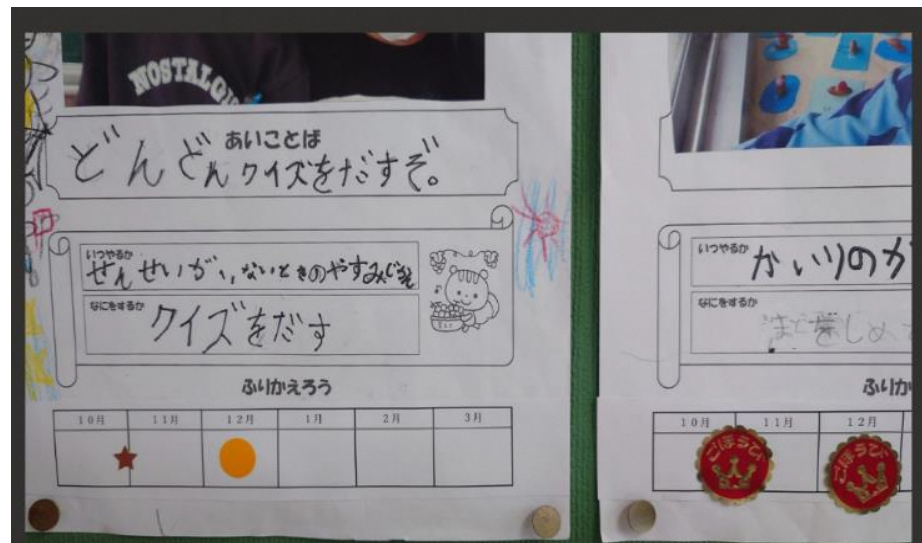 NOSTALG
あいことば
どんどんクイズをだすぞ。
いつやるか
せんせいがいないときのやすみじかん
なにをするか
クイズをだす
ふりかえろう
10月 11月 12月 1月 2月 3月
いつやるか
かいりのか
なにをするか
しめ
ふりか
10月 11月 12月
ごほうび
ごほうび